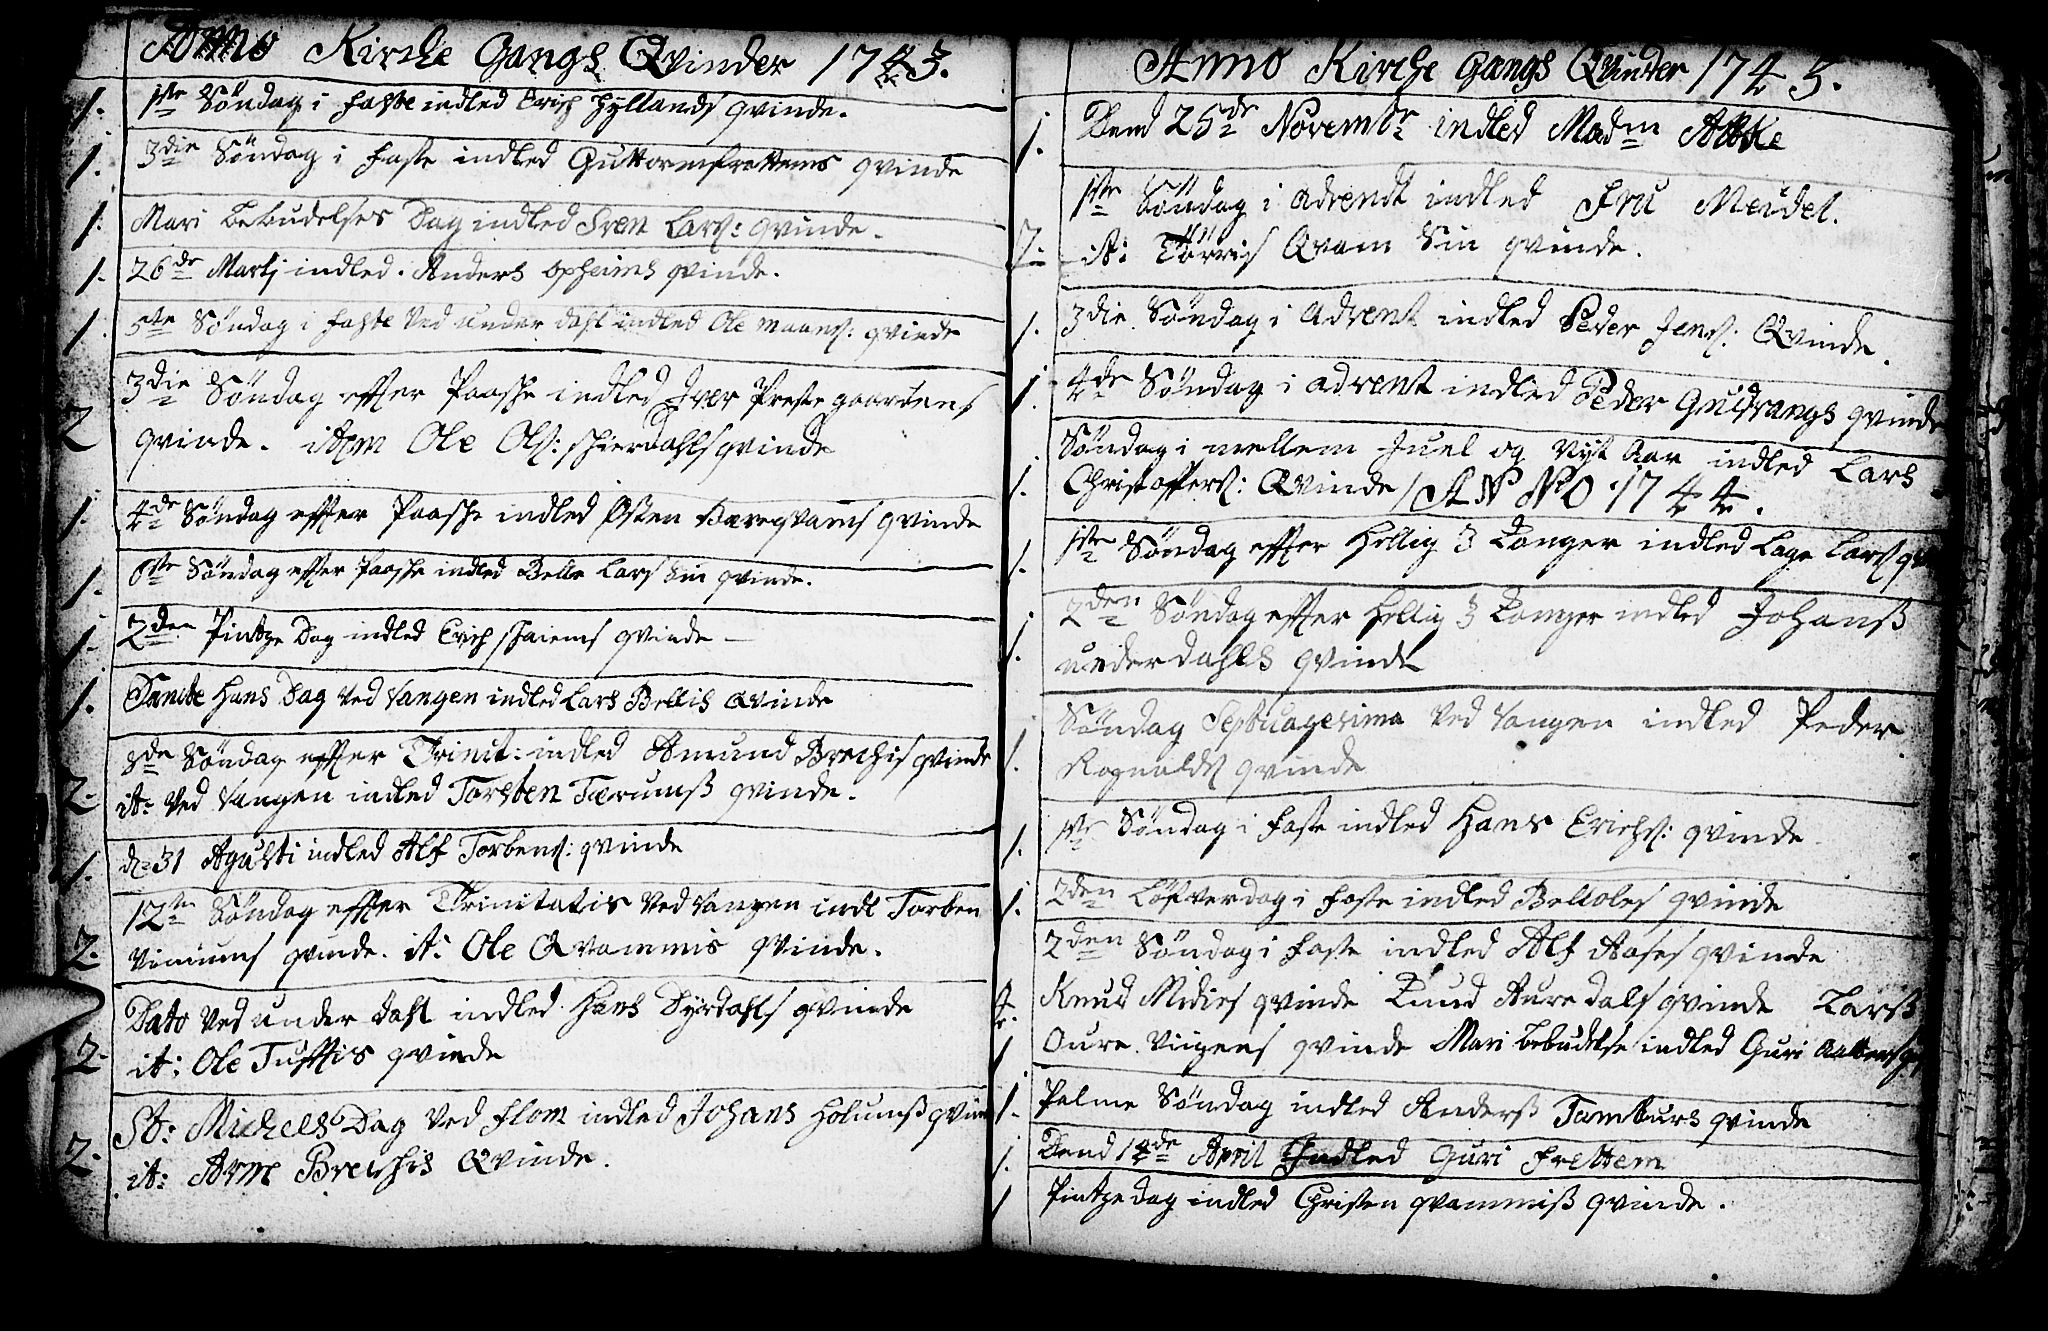 Anno Kirche Gangs Qvinder 1743.
1. 1ste Søndag i faste indled Erich Hyllands qvinde.
1. 3die Søndag i faste indled Guttorm frettems qvinde
1. Mari bebudelses Dag indled Sven Lars: qvinde.
1. 26de Martj indled. Anders opheims qvinde.
1. 5te Søndag i faste ved under dahl indled Ole maans: qvinde
3die Søndag effter Paasche indled Iver Preste gaardens
2 qvinde. item Ole Ols: schierdahls qvinde
1. 4de Søndag effter Paasche indled Østen Bareqvams qvinde
1. 6te Søndag effter Paasche indled Belle Lars sin qvinde.
1. 2den Pintze Dag indled Erich schaiems qvinde
1. Sancte Hans Dag ved Vangen indled Lars Bellis Qvinde
8de Søndag effter Trinit: indled Amund Brechis qvinde
2. it: ved Vangen indled Torsten Tærumss qvinde.
1. d: 31 Agusti indled Alf Torbens: qvinde
12te Søndag effter Trinitatis ved Vangen indl Torben
2. Viniums qvinde. it: Ole Qvammis qvinde.
Dato ved under dahl indled Hans Dyrdahls qvinde
2. it: Ole Tufftis qvinde
St: Michels Dag ved flom indled Johans Holumss qvin
2. it: Arne Brechis Qvinde.
Anno Kirche Gangs Qvinder 1743.
1. Dend 25de Novembr indled Madm Abbke
1ste Søndag i advendt indled Fru Meidel.
2. it: Törris Qvam sin qvinde.
1. 3die Søndag i advent indled Peder Jens: Qvinde.
1. 4de Søndag i advent indled Peder Gudvangs qvinde
Søndag i mellem Juel og Nyt Aar indled Lars
1. Christoffers: Qvinde / ANNO 1744.
1. 1ste Søndag effter hellig 3 Konger indled Lage Lars qvi
2den Søndag effter hellig 3 Konger indled Johanss
1. under dahls qvinde
Søndag Septuagesima ved Vangen indled Peder
1. Rognalds qvinde
1. 1ste Søndag i faste indled Hans Erichs: qvinde
1. 2den Løfverdag i faste indled Belloles qvinde
2den Søndag i faste indled Alf Aases qvinde
4. Knud Midies qvinde Knud Aure dals qvinde Larss
1 Oure Viigens qvinde Mari bebudelse indled Guri
1. Palme Søndag indled Anderss Tamburs qvinde
1. Dend 14de April Indled Guri Frettem
1 Pintze dag indled Christen qvammiss qvinde.